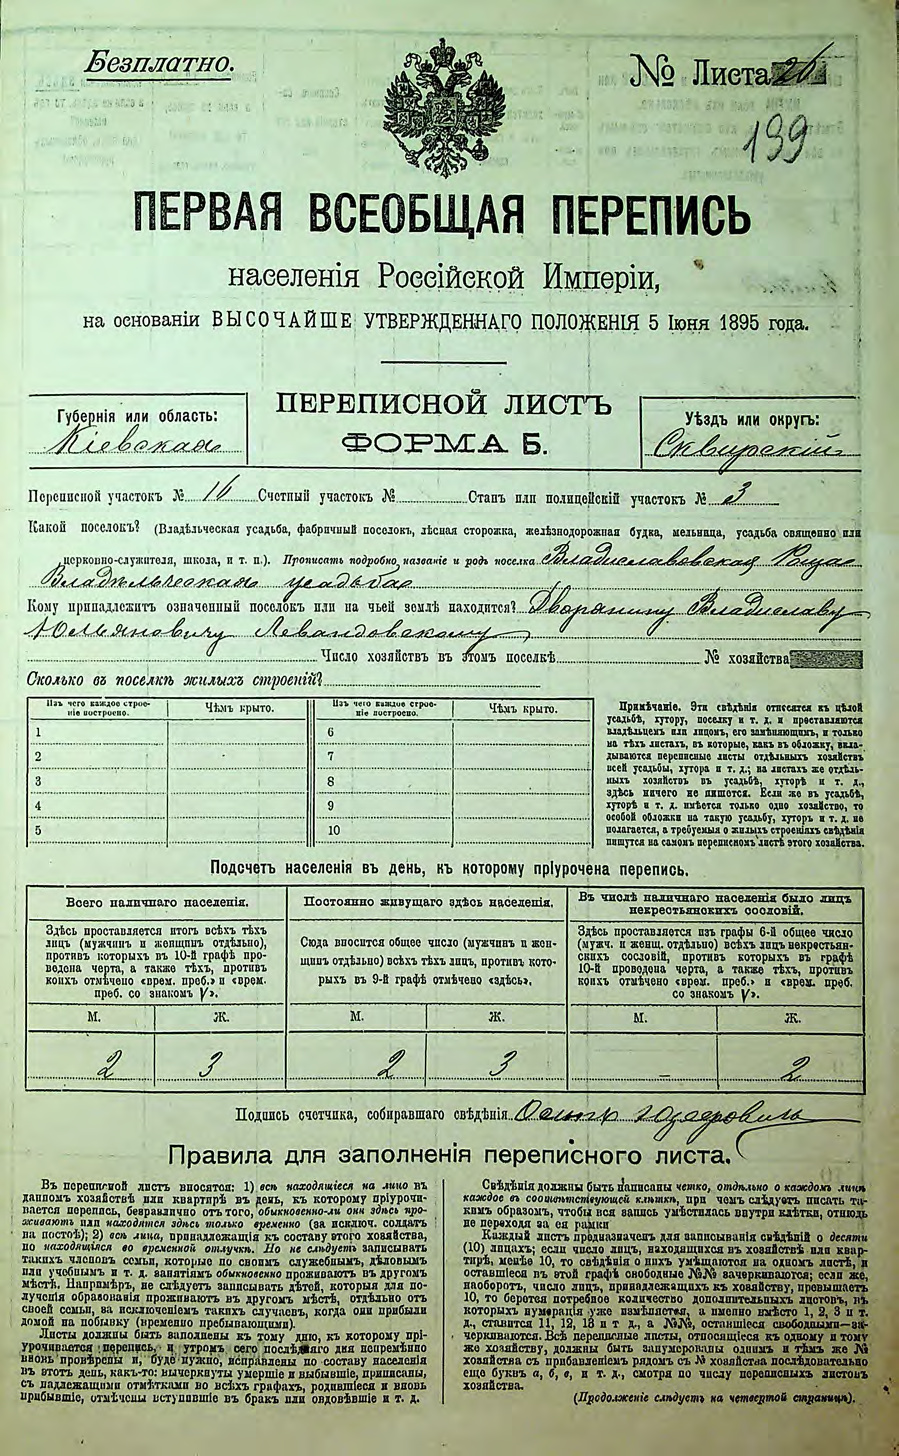 Безплатно.
№ Листа 26
199
ПЕРВАЯ ВСЕОБЩАЯ ПЕРЕПИСЬ
населенія Россійской Имперіи,
на основаніи ВЫСОЧАЙШЕ УТВЕРЖДЕННАГО ПОЛОЖЕНІЯ 5 Іюня 1895 года.
Губернія или область:
Кіевская
ПЕРЕПИСНОЙ ЛИСТЪ
ФОРМА Б.
Уѣздъ или округъ:
Сквирскій
Переписной участокъ № 16 Счетный участокъ № Станъ или полицейскій участокъ № 3
Какой поселокъ? (Владѣльческая усадьба, фабричный поселокъ, лѣсная сторожка, желѣзнодорожная будка, мельница, усадьба священно или
церковно-служителя, школа, и т. п.). Прописать подробно названіе и родъ поселка Владиславовская Роща
Владѣльческая усадьба
Кому принадлежитъ означенный поселокъ или на чьей землѣ находится? Дворянину Владиславу
Юльяновичу Левандовскому
Число хозяйствъ въ этомъ поселкѣ № хозяйства
Сколько въ поселкѣ жилыхъ строеній?
Изъ чего каждое строеніе построено. Чѣмъ крыто. Изъ чего каждое строеніе построено. Чѣмъ крыто.
1 6
2 7
3 8
4 9
5 10
Примѣчаніе. Эти свѣдѣнія относятся къ цѣлой
усадьбѣ, хутору, поселку и т. д. и проставляются
владѣльцемъ или лицомъ, его замѣняющимъ, и только
на тѣхъ листахъ, въ которые, какъ въ обложку, вкла-
дываются переписные листы отдѣльныхъ хозяйствъ
всей усадьбы, хутора и т. д.; на листахъ же отдѣль-
ныхъ хозяйствъ въ усадьбѣ, хуторѣ и т. д.,
здѣсь ничего не пишется. Если же въ усадьбѣ,
хуторѣ и т. д. имѣется только одно хозяйство, то
особой обложки на такую усадьбу, хуторъ и т. д. не
полагается, а требуемыя о жилыхъ строеніяхъ свѣдѣнія
пишутся на самомъ переписномъ листѣ этого хозяйства.
Подсчетъ населенія въ день, къ которому пріурочена перепись.
Всего наличнаго населенія.
Здѣсь проставляется итогъ всѣхъ тѣхъ
лицъ (мужчинъ и женщинъ отдѣльно),
противъ которыхъ въ 10-й графѣ про-
ведена черта, а также тѣхъ, противъ
коихъ отмѣчено «врем. преб.» и «врем.
преб. со знакомъ V».
М. Ж.
2 3
Постоянно живущаго здѣсь населенія.
Сюда вносится общее число (мужчинъ и жен-
щинъ отдѣльно) всѣхъ тѣхъ лицъ, противъ кото-
рыхъ въ 9-й графѣ отмѣчено «здѣсь».
М. Ж.
2 3
Въ числѣ наличнаго населенія было лицъ
некрестьянскихъ сословій.
Здѣсь проставляется изъ графы 6-й общее число
(мужч. и женщ. отдѣльно) всѣхъ лицъ некрестьян-
скихъ сословій, противъ которыхъ въ графѣ
10-й проведена черта, а также тѣхъ, противъ
коихъ отмѣчено «врем. преб.» и «врем. преб.
со знакомъ V».
М. Ж.
– 2
Подпись счетчика, собиравшаго свѣдѣнія Осипъ
Правила для заполненія переписного листа.
Въ переписной листъ вносятся: 1) всѣ находящіеся на лицо въ
данномъ хозяйствѣ или квартирѣ въ день, къ которому пріурочи-
вается перепись, безразлично отъ того, обыкновенно-ли они здѣсь про-
живаютъ или находятся здѣсь только временно (за исключ. солдатъ
на постоѣ); 2) всѣ лица, принадлежащія къ составу этого хозяйства,
но находящіяся во временной отлучкѣ. Но не слѣдуетъ записывать
такихъ членовъ семьи, которые по своимъ служебнымъ, дѣловымъ
или учебнымъ и т. д. занятіямъ обыкновенно проживаютъ въ другомъ
мѣстѣ. Напримѣръ, не слѣдуетъ записывать дѣтей, которыя для по-
лученія образованія проживаютъ въ другомъ мѣстѣ, отдѣльно отъ
своей семьи, за исключеніемъ такихъ случаевъ, когда они прибыли
домой на побывку (временно пребывающими).
Листы должны быть заполнены къ тому дню, къ которому прі-
урочивается перепись, и утромъ сего послѣдняго дня непремѣнно
вновь провѣрены и, буде нужно, исправлены по составу населенія
въ этотъ день, какъ-то: вычеркнуты умершіе и выбывшіе, приписаны,
съ надлежащими отмѣтками во всѣхъ графахъ, родившіеся и вновь
прибывшіе, отмѣчены вступившіе въ бракъ или овдовѣвшіе и т. д.
Свѣдѣнія должны быть написаны четко, отдѣльно о каждомъ лицѣ
каждое въ соотвѣтствующей клѣткѣ, при чемъ слѣдуетъ писать та-
кимъ образомъ, чтобы вся запись умѣстилась внутри клѣтки, отнюдь
не переходя за ея рамки
Каждый листъ предназначенъ для записыванія свѣдѣній о десяти
(10) лицахъ; если число лицъ, находящихся въ хозяйствѣ или квар-
тирѣ, менѣе 10, то свѣдѣнія о нихъ умѣщаются на одномъ листѣ, и
оставшіеся въ этой графѣ свободными №№ зачеркиваются; если же,
наоборотъ, число лицъ, принадлежащихъ къ хозяйству, превышаетъ
10, то берется потребное количество дополнительныхъ листовъ, въ
которыхъ нумерація уже измѣняется, а именно вмѣсто 1, 2, 3 и т.
д., ставится 11, 12, 13 и т д., а №№, оставшіеся свободными—за-
черкиваются. Всѣ переписные листы, относящіеся къ одному и тому
же хозяйству, должны быть занумерованы однимъ и тѣмъ же №
хозяйства съ прибавленіемъ рядомъ съ № хозяйства послѣдовательно
еще буквъ а, б, в, и т. д., смотря по числу переписныхъ листовъ
хозяйства.
(Продолженіе слѣдуетъ на четвертой страницѣ).